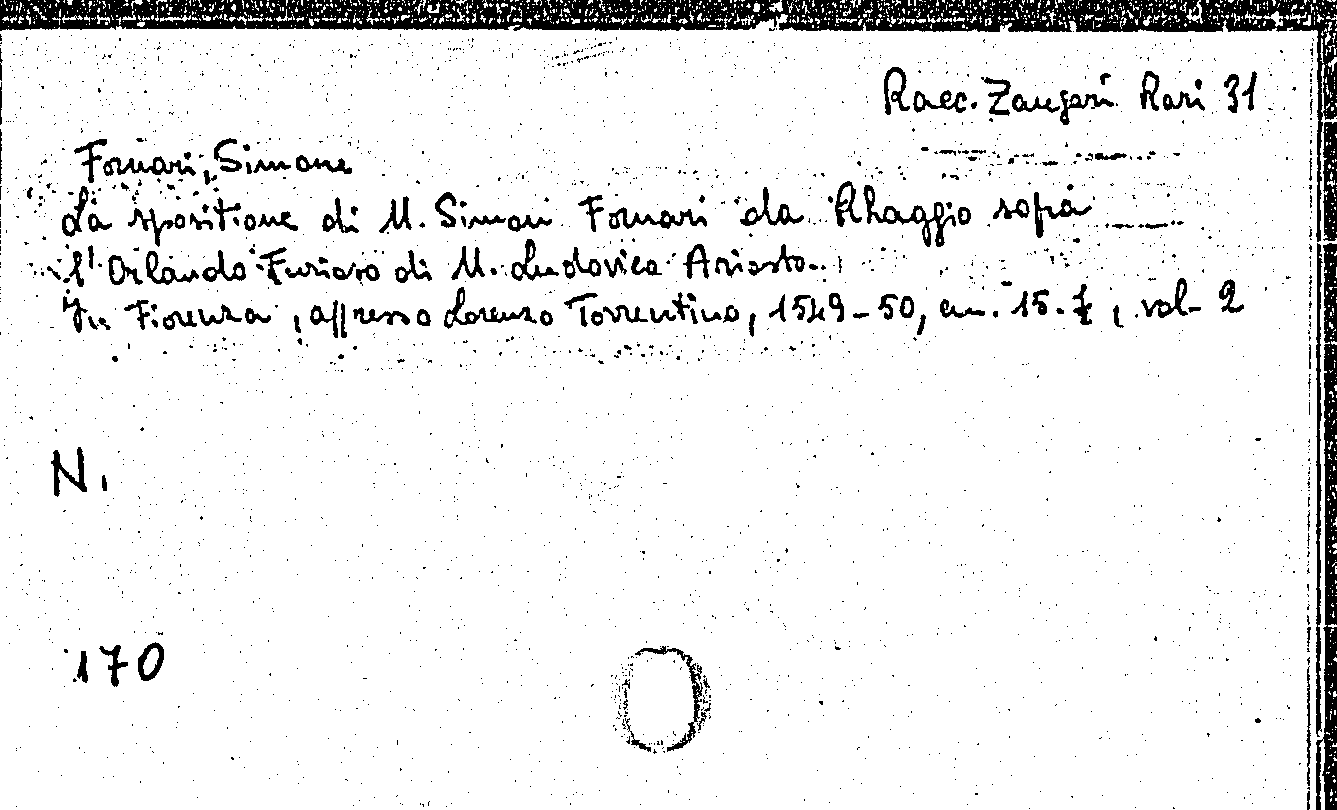 Racc. Zangari Rari 31
Fornari, Simone
La spositione di M. Simon Fornari da Rhaggio sopra
l'Orlando Furioso di M. Ludovico Ariosto.
In Fiorenza, appresso Lorenzo Torrentino, 1549-50, cm. 15.7, vol. 2
N.
170